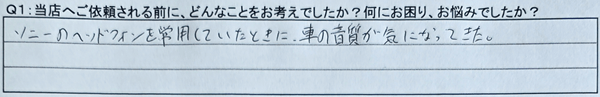 Q1:当店へご依頼される前に、どんなことをお考えでしたか？何にお困り、お悩みでしたか？
ソニーのヘッドフォンを常用していたときに、車の音質が気になってきた。